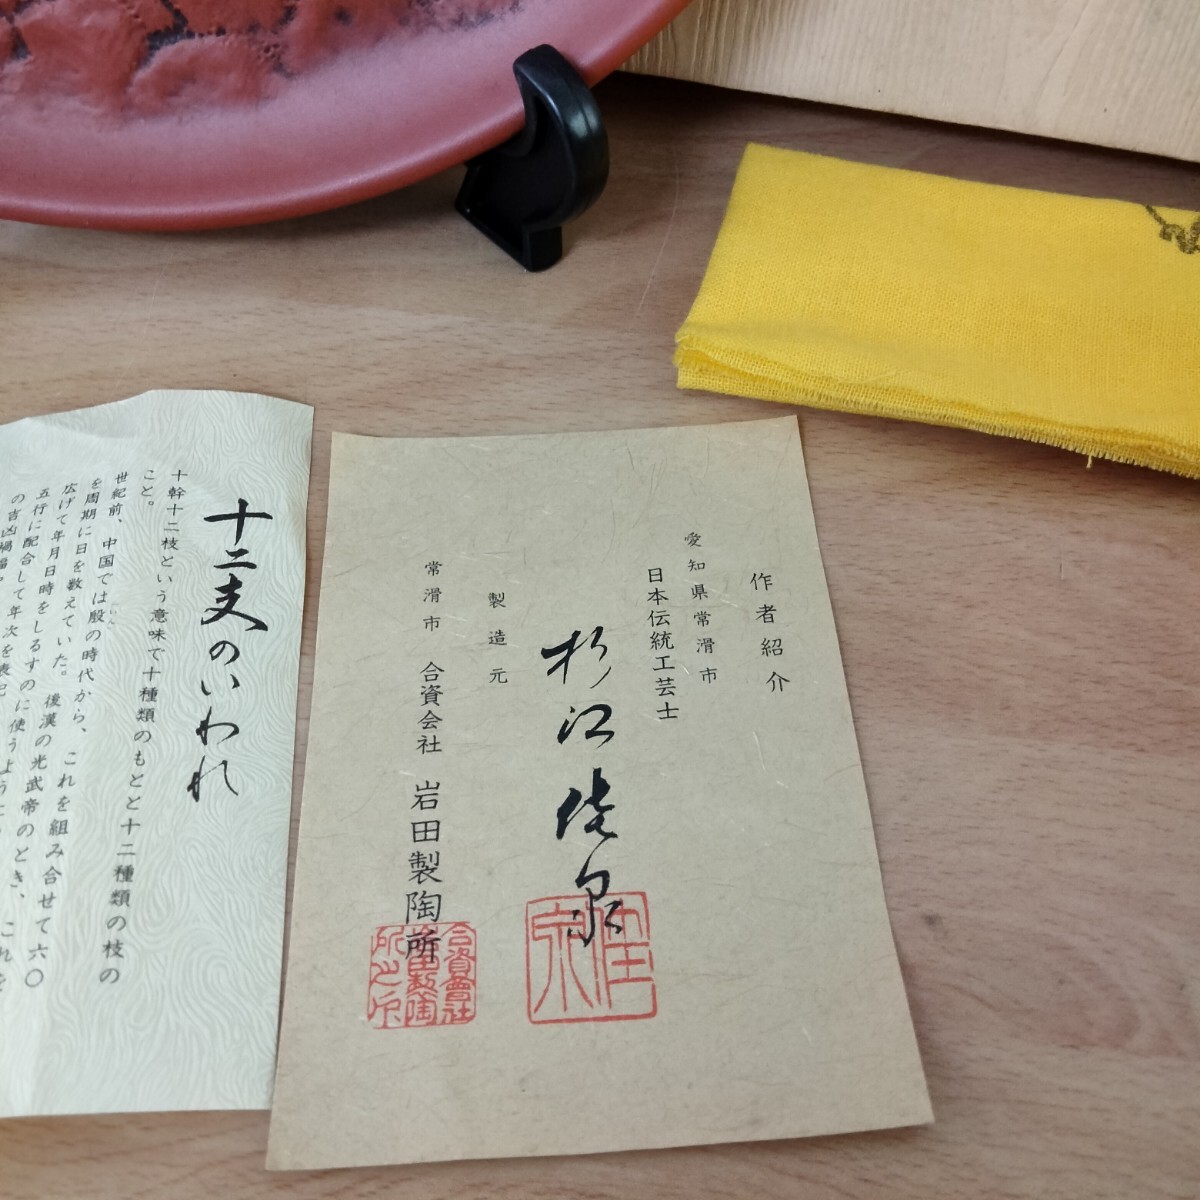 作者紹介
愛知県常滑市
日本伝統工芸士
杉江佳泉
佳泉
製造元
常滑市 合資会社 岩田製陶所
合資會社岩田製陶所之印
十二支のいわれ
十幹十二枝という意味で十種類のもとと十二種類の枝の
こと。
世紀前、中国では殷の時代から、これを組み合せて六〇
を周期に日を数えていた。後漢の光武帝のとき、これを
広げて年月日時をしるすのに使うように
五行に配合して年次を表記
の吉凶禍福